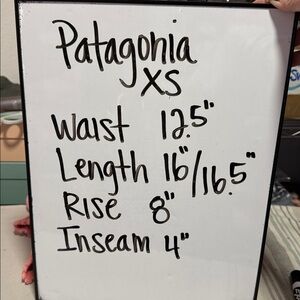 Patagonia
XS
Waist 12.5"
Length 16"/16.5"
Rise 8"
Inseam 4"